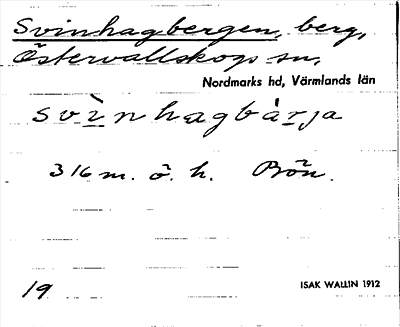 Svinhagbergen, berg,
Östervallskogs sn,
Nordmarks hd, Värmlands län
svìnhagbàrja
316 m. ö. h. Bön.
19
ISAK WALLIN 1912